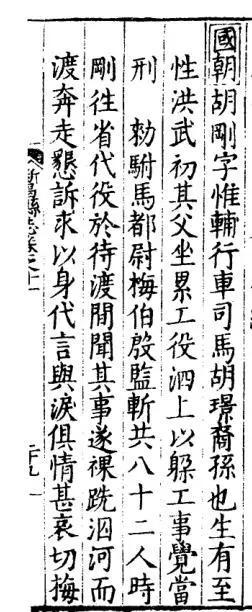 國朝胡剛字惟輔行車司馬胡璟裔孫也生有至
性洪武初其父坐累工役泗上以躱工事覺當
刑　勑駙馬都尉梅伯殷監斬共八十二人時
剛徃省代役於待渡間聞其事遂裸跣泅河而
渡奔走懇訴求以身代言與淚俱情甚哀切梅
新昌縣志卷之十一